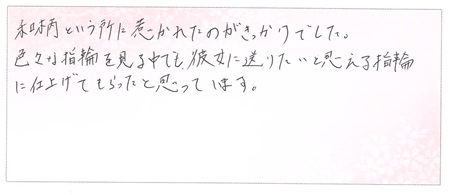 和柄という所に惹かれたのがきっかけでした。
色々な指輪を見る中でも、彼女に送りたいと思える指輪
に仕上げてもらったと思っています。